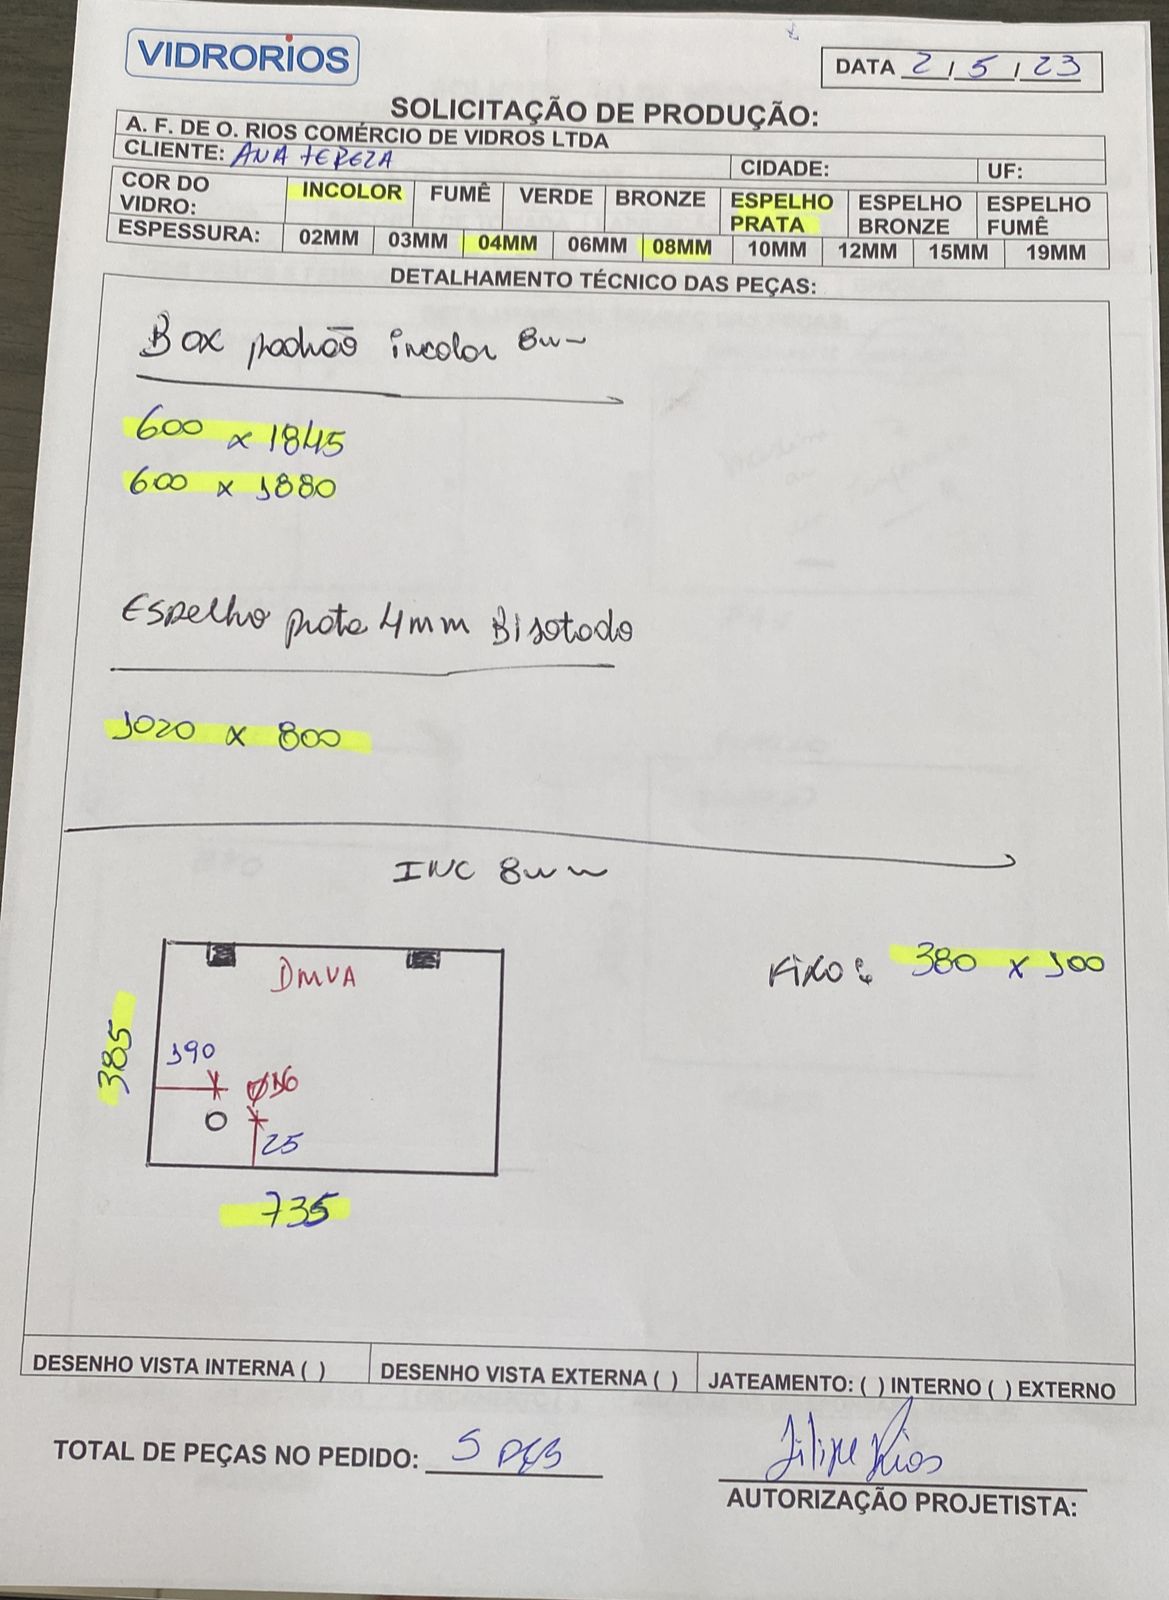 VIDRORIOS
DATA 2 / 5 / 23
SOLICITAÇÃO DE PRODUÇÃO:
A. F. DE O. RIOS COMÉRCIO DE VIDROS LTDA
CLIENTE: ANA TEREZA CIDADE: UF:
COR DO VIDRO: INCOLOR FUMÊ VERDE BRONZE ESPELHO PRATA ESPELHO BRONZE ESPELHO FUMÊ
ESPESSURA: 02MM 03MM 04MM 06MM 08MM 10MM 12MM 15MM 19MM
DETALHAMENTO TÉCNICO DAS PEÇAS:
Box padrão incolor 8mm
600 x 1845
600 x 1880
Espelho prata 4mm Bisotado
1020 x 800
INC 8mm
DMVA
Fixo: 380 x 100
385
190
Ø16
25
735
DESENHO VISTA INTERNA ( ) DESENHO VISTA EXTERNA ( ) JATEAMENTO: ( ) INTERNO ( ) EXTERNO
TOTAL DE PEÇAS NO PEDIDO: 5 PÇS
Filipe Rios
AUTORIZAÇÃO PROJETISTA: